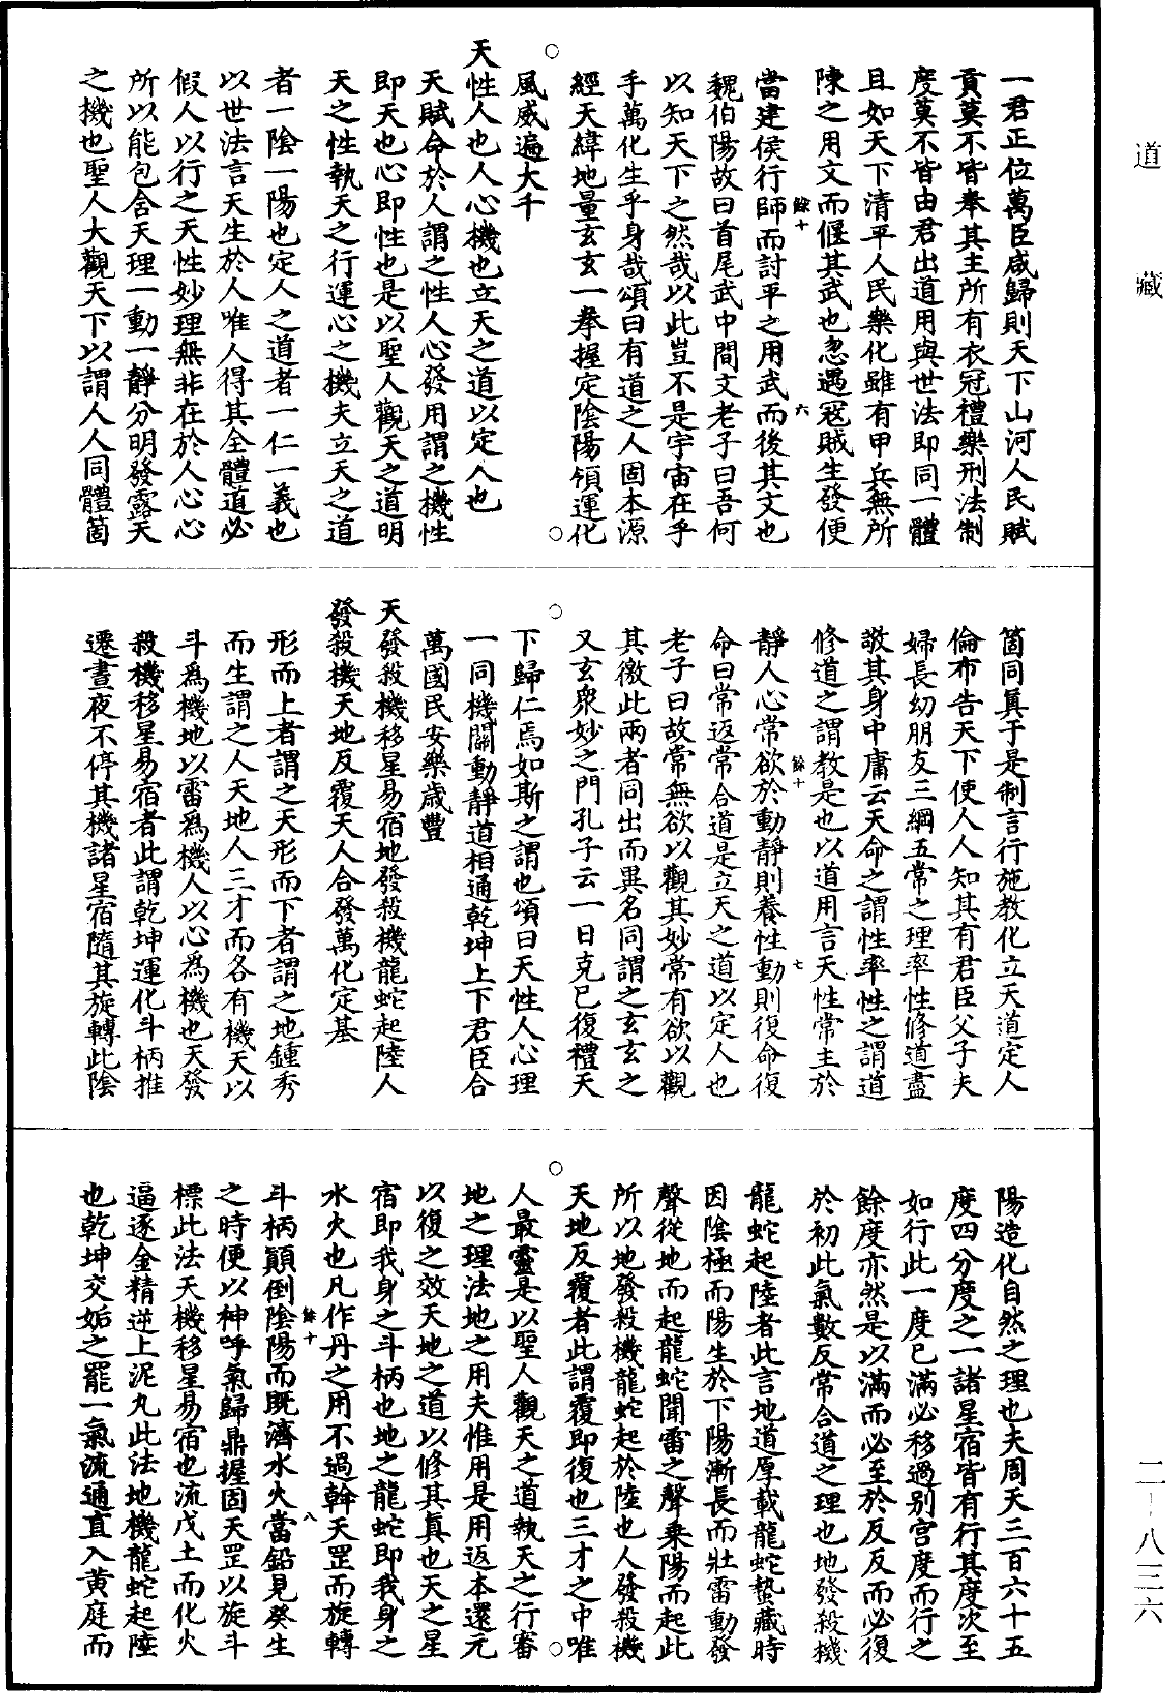 道藏
一君正位萬臣咸歸則天下山河人民賦
貢莫不皆奉其主所有衣冠禮樂刑法制
度莫不皆由君出道用與世法即同一體
且如天下清平人民樂化雖有甲兵無所
陳之用文而偃其武也忽遇冦賊生發便
當建侯行師而討平之用武而後其文也
餘十 六
魏伯陽故曰首尾武中間文老子曰吾何
以知天下之然哉以此豈不是宇宙在乎
手萬化生乎身哉頌曰有道之人固本源
經天緯地量玄玄一拳握定陰陽領運化
風威遍大千
天性人也人心機也立天之道以定人也
天賦命於人謂之性人心發用謂之機性
即天也心即性也是以聖人觀天之道明
天之性執天之行運心之機夫立天之道
者一陰一陽也定人之道者一仁一義也
以世法言天生於人唯人得其全體道必
假人以行之天性妙理無非在於人心心
所以能包含天理一動一靜分明發露天
之機也聖人大觀天下以謂人人同體箇
箇同真于是制言行施教化立天道定人
倫布告天下使人人知其有君臣父子夫
婦長幼朋友三綱五常之理率性修道盡
敬其身中庸云天命之謂性率性之謂道
修道之謂教是也以道用言天性常主於
靜人心常欲於動靜則養性動則復命復
餘十 七
命曰常返常合道是立天之道以定人也
老子曰故常無欲以觀其妙常有欲以觀
其徼此兩者同出而異名同謂之玄玄之
又玄衆妙之門孔子云一日克己復禮天
下歸仁焉如斯之謂也頌曰天性人心理
一同機關動靜道相通乾坤上下君臣合
萬國民安樂歲豐
天發殺機移星易宿地發殺機龍蛇起陸人
發殺機天地反覆天人合發萬化定基
形而上者謂之天形而下者謂之地鍾秀
而生謂之人天地人三才而各有機天以
斗爲機地以雷爲機人以心為機也天發
殺機移星易宿者此謂乾坤運化斗柄推
遷晝夜不停其機諸星宿隨其旋轉此陰
陽造化自然之理也夫周天三百六十五
度四分度之一諸星宿皆有行其度次至
如行此一度已滿必移過别宫度而行之
餘度亦然是以滿而必至於反反而必復
於初此氣數反常合道之理也地發殺機
龍蛇起陸者此言地道厚載龍蛇蟄藏時
因陰極而陽生於下陽漸長而壯雷動發
聲從地而起龍蛇聞雷之聲乘陽而起此
所以地發殺機龍蛇起於陸也人發殺機
天地反覆者此謂覆即復也三才之中唯
人最靈是以聖人觀天之道執天之行審
地之理法地之用夫惟用是用返本還元
以復之效天地之道以修其真也天之星
宿即我身之斗柄也地之龍蛇即我身之
水火也凡作丹之用不過斡天罡而旋轉
餘十 八
斗柄顛倒陰陽而既濟水火當鉛見癸生
之時便以神呼氣歸鼎握固天罡以旋斗
標此法天機移星易宿也流戊土而化火
逼逐金精逆上泥丸此法地機龍蛇起陸
也乾坤交姤之罷一氣流通直入黄庭而
二-八三六